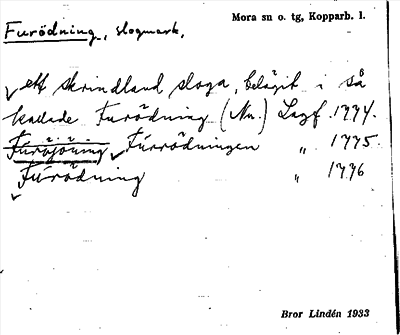 Furödning, slogmark.
Mora sn o. tg, Kopparb. l.
ett skrindland sloga, belägit i så
kallade Furödning (Nu.) Lagf. 1774.
Furröjning Furrödningen „ 1775.
Furödning „ 1776
Bror Lindén 1933